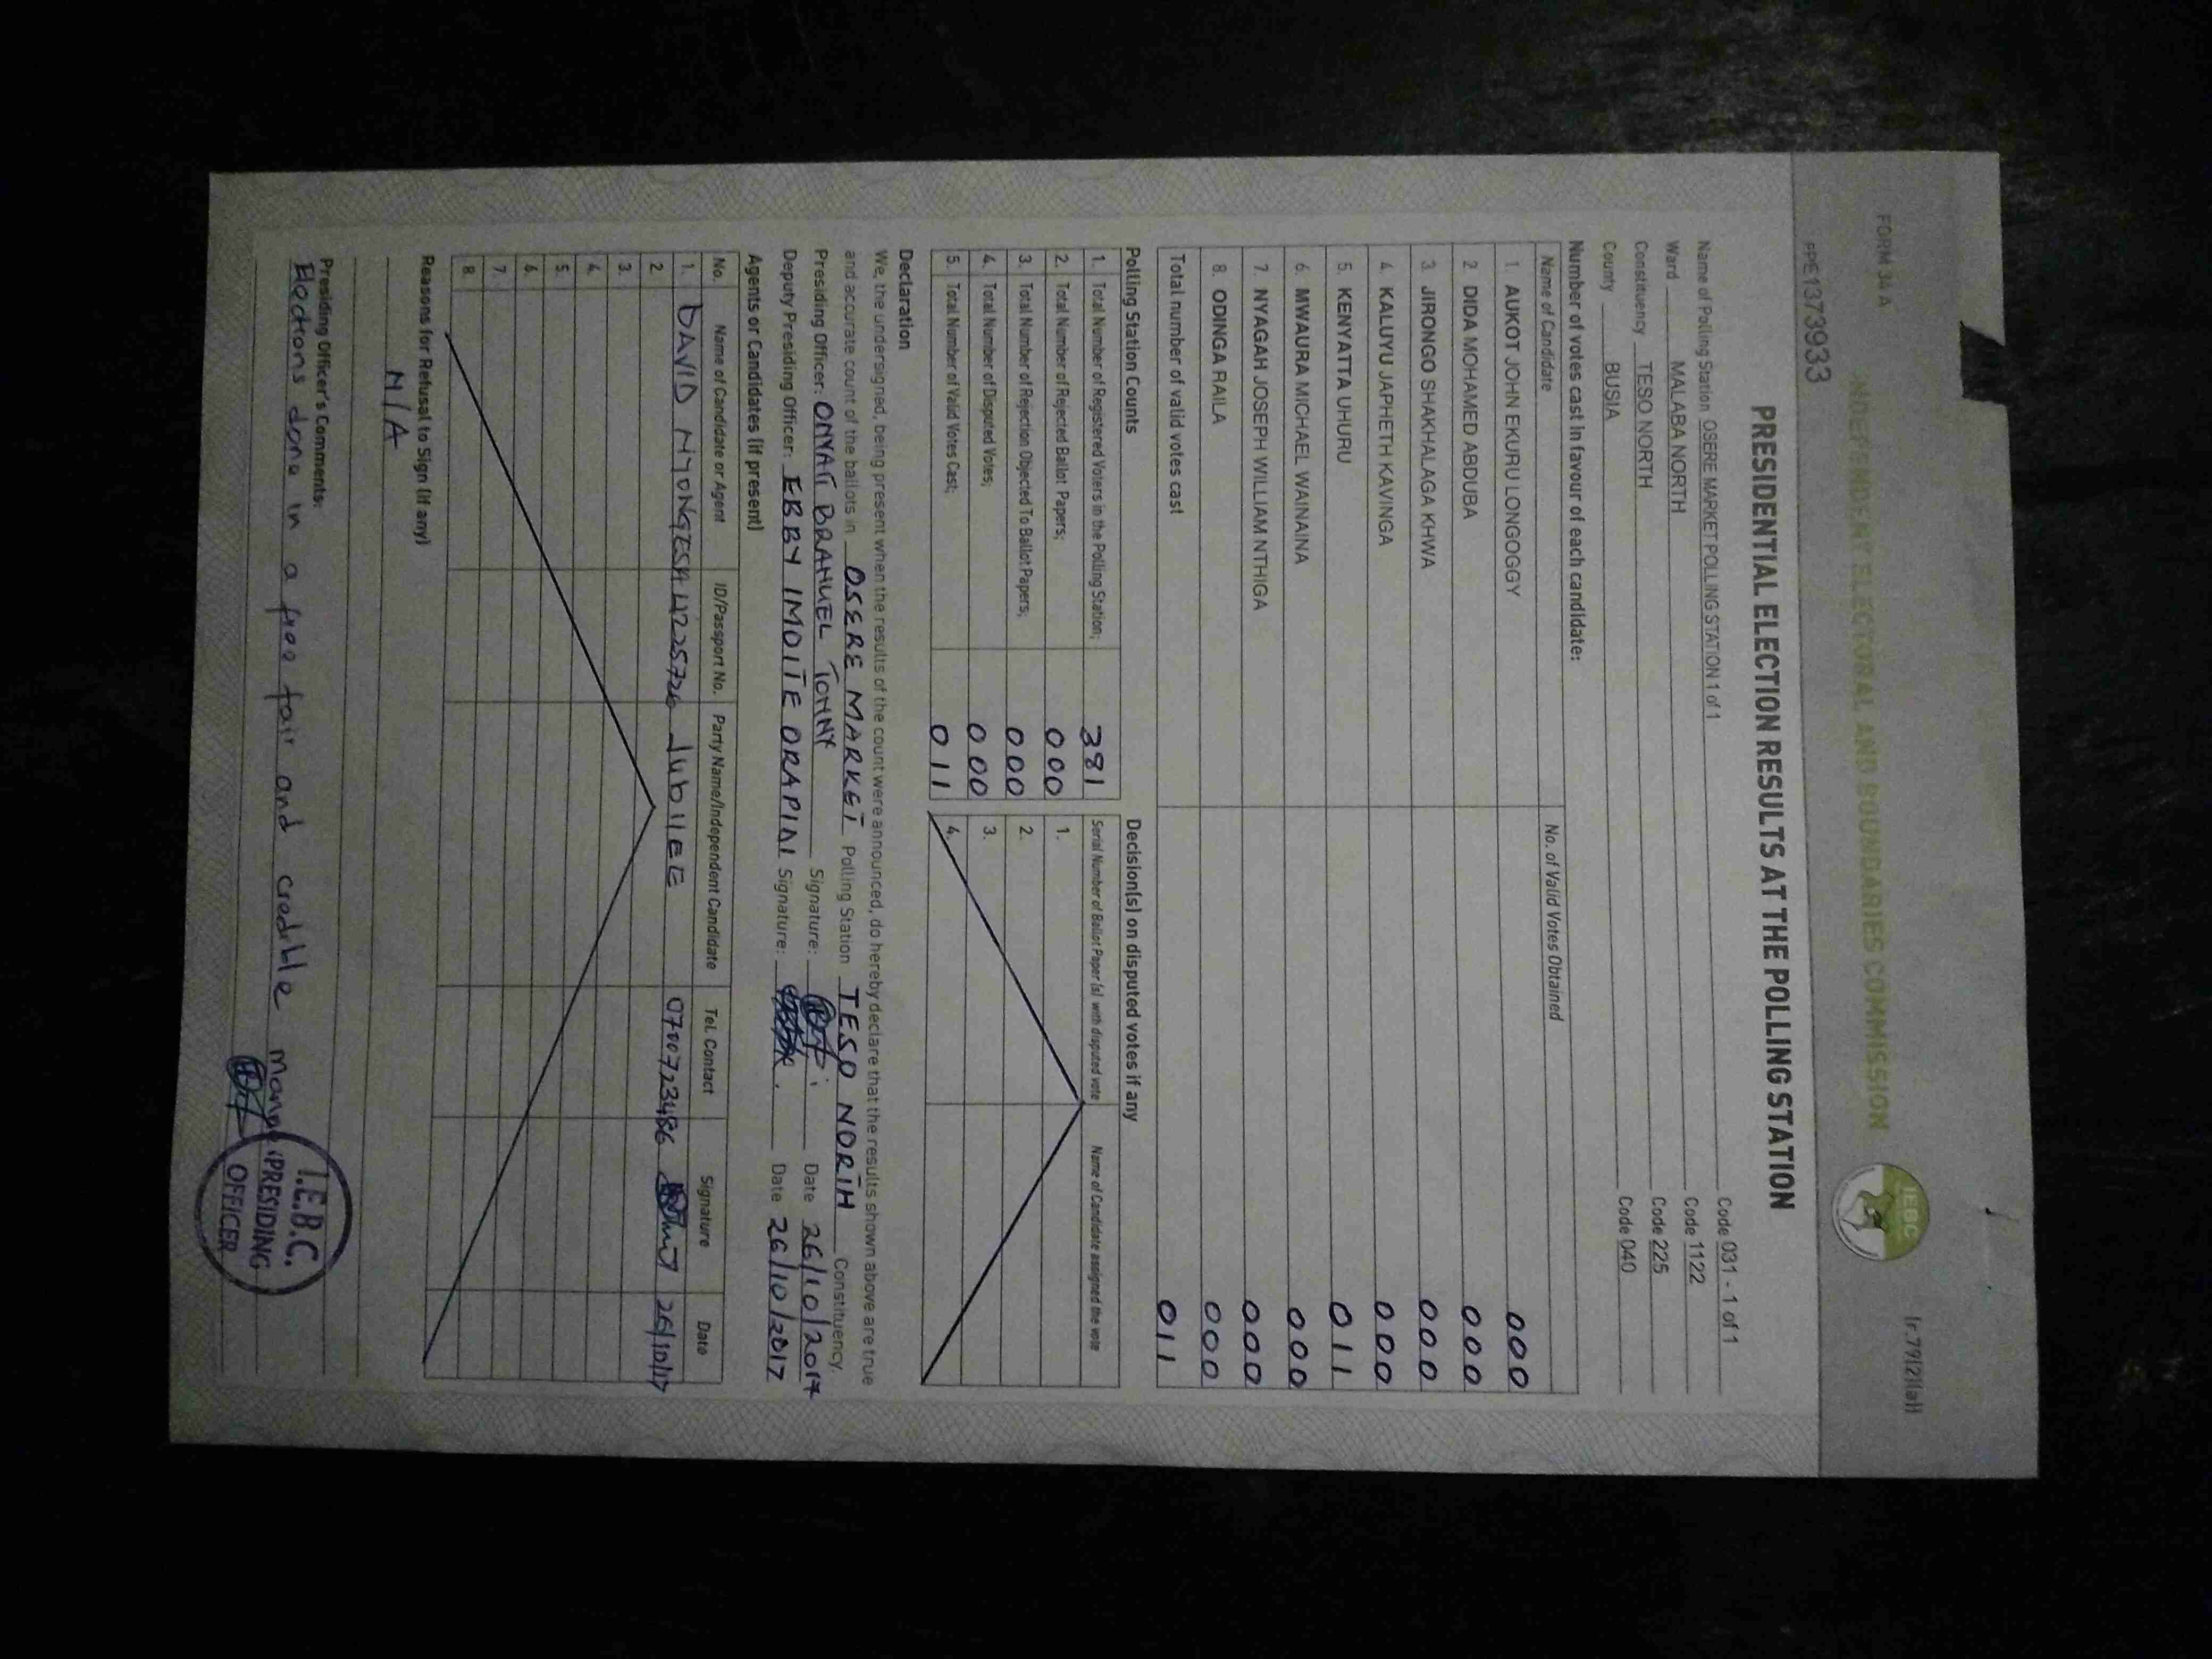 FORM 34 A
[r.79(2)(a)]
INDEPENDENT ELECTORAL AND BOUNDARIES COMMISSION
IEBC
PPE1373933
PRESIDENTIAL ELECTION RESULTS AT THE POLLING STATION
Name of Polling Station OSERE MARKET POLLING STATION 1 of 1 Code 031 - 1 of 1
Ward MALABA NORTH Code 1122
Constituency TESO NORTH Code 225
County BUSIA Code 040
Number of votes cast in favour of each candidate:
Name of Candidate No. of Valid Votes Obtained
1. AUKOT JOHN EKURU LONGOGGY 000
2 DIDA MOHAMED ABDUBA 000
3. JIRONGO SHAKHALAGA KHWA 000
4. KALUYU JAPHETH KAVINGA 000
5. KENYATTA UHURU 011
6. MWAURA MICHAEL WAINAINA 000
7. NYAGAH JOSEPH WILLIAM NTHIGA 000
8. ODINGA RAILA 000
Total number of valid votes cast 011
Polling Station Counts
1. Total Number of Registered Voters in the Polling Station; 381
2. Total Number of Rejected Ballot Papers; 000
3. Total Number of Rejection Objected To Ballot Papers; 000
4. Total Number of Disputed Votes; 000
5. Total Number of Valid Votes Cast; 011
Decision(s) on disputed votes if any
Serial Number of Ballot Paper (s) with disputed vote Name of Candidate assigned the vote
1.
2.
3.
4.
Declaration
We, the undersigned, being present when the results of the count were announced, do hereby declare that the results shown above are true
and accurate count of the ballots in OSERE MARKET Polling Station TESO NORTH Constituency.
Presiding Officer: BRAHUEL TONNY Signature: Date 26/10/2017
Deputy Presiding Officer: EBBY IMOITE ORAPINI Signature: Date 26/10/2017
Agents or Candidates (if present)
No. Name of Candidate or Agent ID/Passport No. Party Name/Independent Candidate Tel. Contact Signature Date
1. DAVID NYONGESA Jubilee 0700723486 26/10/17
2
3.
4.
5.
6.
7.
8.
Reasons for Refusal to Sign (if any)
N/A
Presiding Officer's Comments:
Elections done in a free fair and credible
I.E.B.C.
PRESIDING
OFFICER